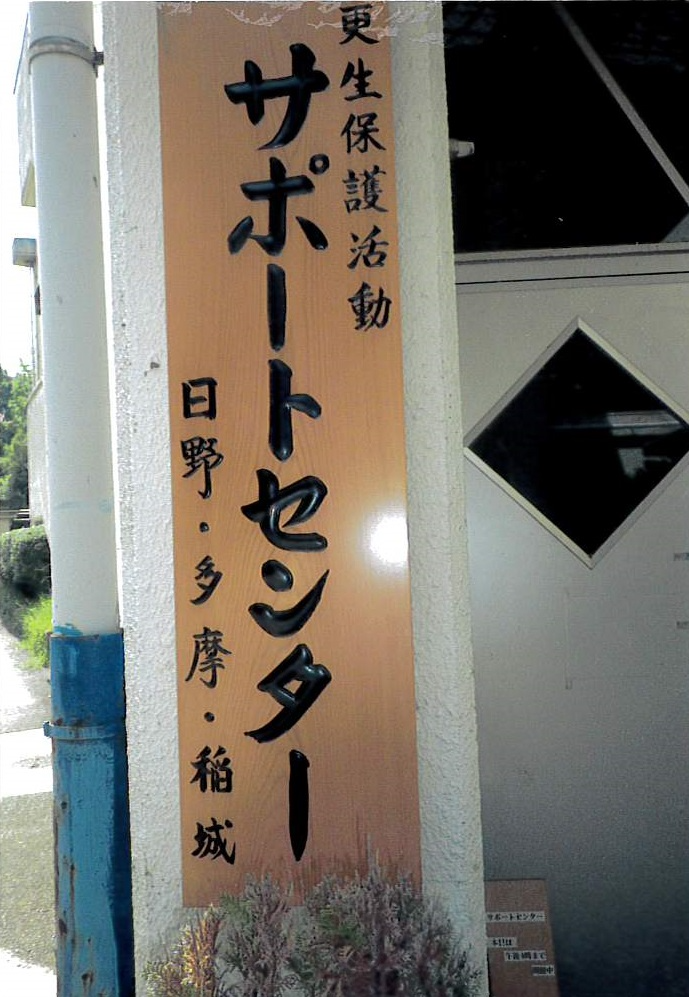 更生保護活動
サポートセンター
日野・多摩・稲城
サポートセンター
本日は
午後4時まで
開館中